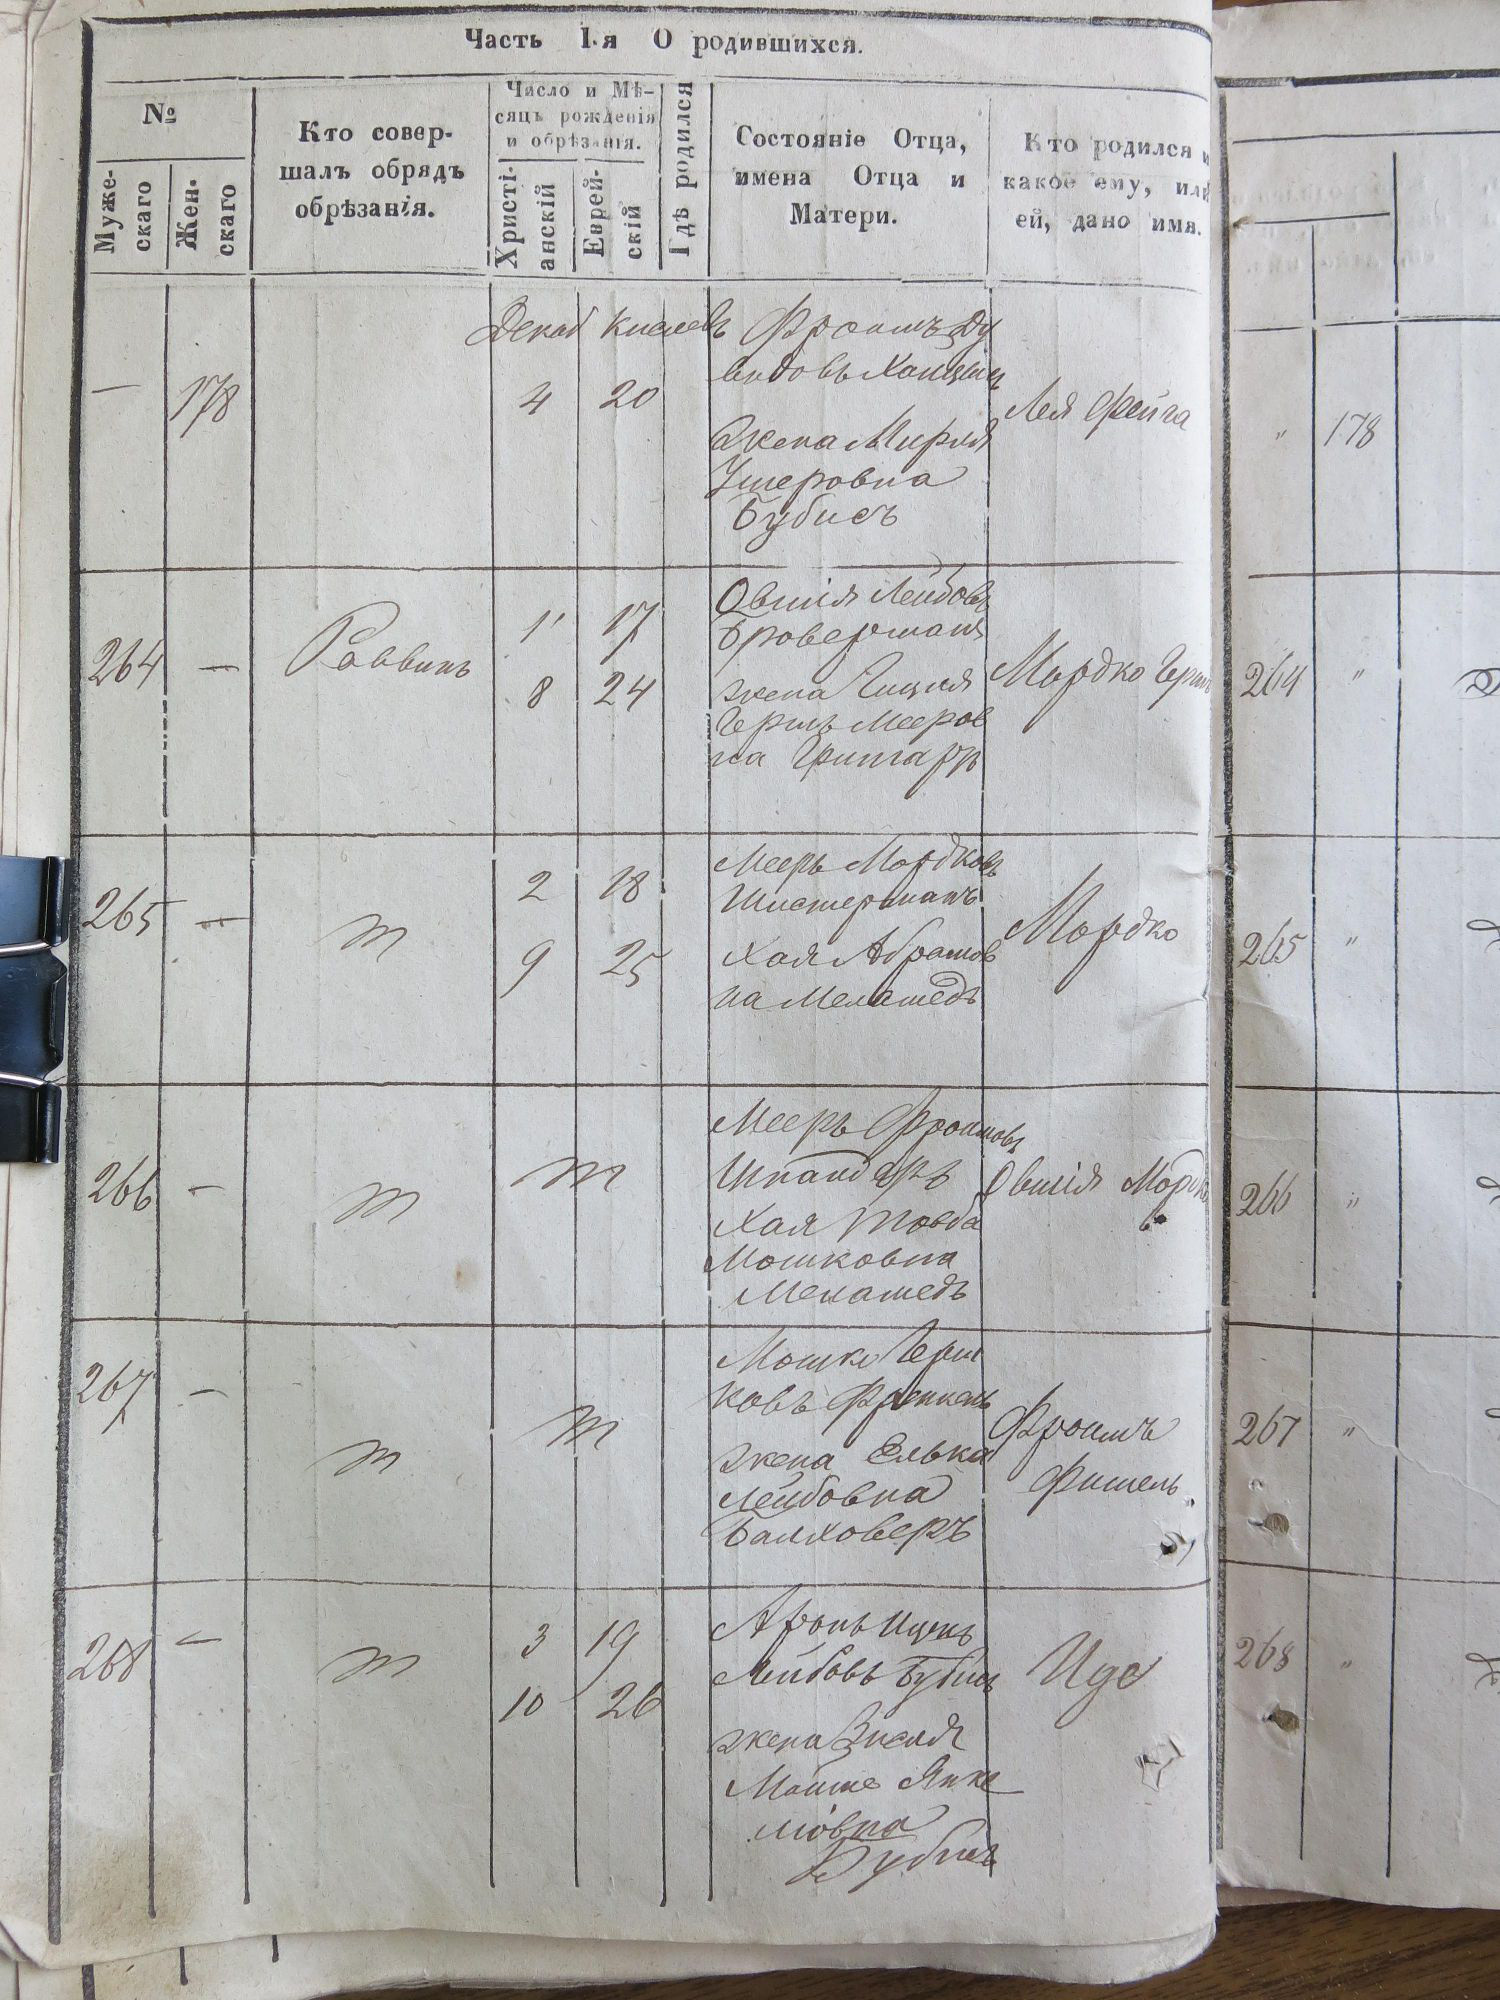 Часть I-я О родившихся.
№
Муже-
скаго
Жен-
скаго
Кто совер-
шалъ обрядъ
обрѣзанія.
Число и Мѣ-
сяцъ рожденія
и обрѣзанія.
Христі-
анскій
Еврей-
скій
Гдѣ родился
Состояніе Отца,
имена Отца и
Матери.
Кто родился и
какое ему, или
ей, дано имя.
Декаб Кислевъ
— 178
4 20
Фроимъ Ду
видовъ
жена Мирля
Ушеровна
Бубисъ
Лея Фейга
264 —
Раввинъ
1 17
8 24
Овшія Лейбовъ
Броверманъ
жена
Гершъ Мееров
на
Мордко Герш
265 —
m
2 18
9 25
Мееръ Мордковъ
Шистерманъ
Хая Абрамов
на Меламедъ
Мордко
266 —
m
m
Мееръ Фроимовъ
Шпандеръ
Хая Товба
Мошковна
Меламедъ
Овшія Мордко
267 —
m
m
Мошко Герш
ковъ Френкель
жена Елька
Лейбовна
Балховеръ
Фроимъ
Фишель
268 —
m
3 19
10 26
Аронъ Ицекъ
Лейбовъ Бубисъ
жена Зисля
Янке
ловна
Бубисъ
" 178
264 "
265 "
266 "
267 "
268 "